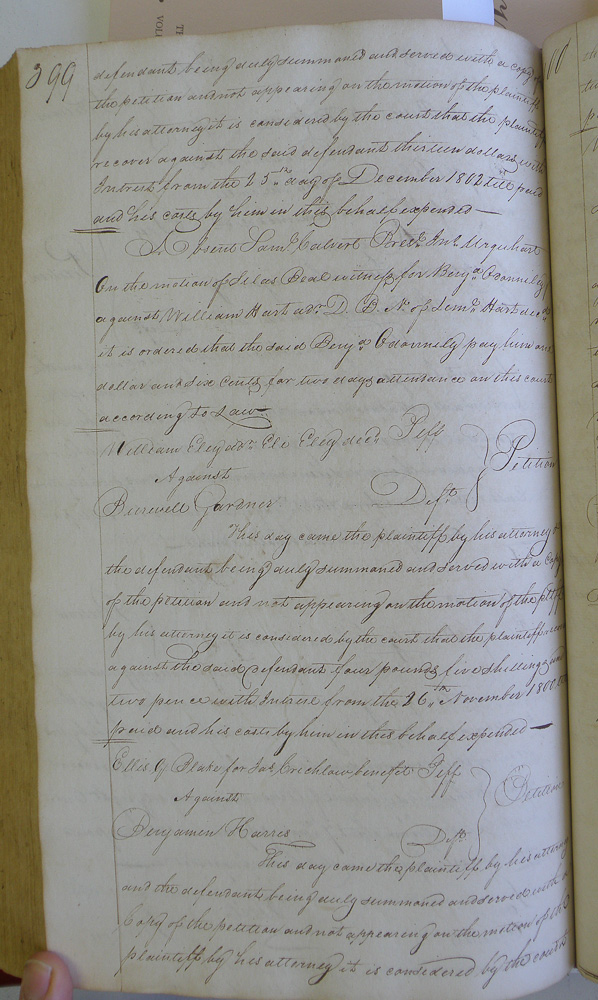 399
defendant being duly summoned and served with a copy of
the petition and not appearing on the motion of the plaintiff
by his attorney it is considered by the court that the plaintiff
recover against the said defendant thirteen dollars with
Interest from the 25th day of December 1802 till paid
and his costs by him in this behalf expended —
Absent Saml Calvert Pret Jno Urquhart
On the motion of Silas Beal witness for Benja Odonnely
against William Hart adr D. B. N. of Hart decd
it is ordered that the said Benja Odonnely pay him one
dollar and six cents for two days attendance on this court
according to Law
William Eley adr Eli Eley decd Peff
Against
Burwell Gardner Deft
Petition
This day came the plaintiff by his attorney &
the defendant being duly summoned and served with a Copy
of the petition and not appearing on the motion of the ptff
by his attorney it is considered by the court that the plaintiff recover
against the said defendant four pounds five shillings and
two pence with Interest from the 26th November 1800 till
paid and his costs by him in this behalf expended —
Ellis G Blake for Jas Crichlow benefit Peff
Against
Benjamen Harres Deft
Petition
This day came the plaintiff by his attorney
and the defendant being duly summoned and served with a
Copy of the petition and not appearing on the motion of the
plaintiff by his attorney it is considered by the court